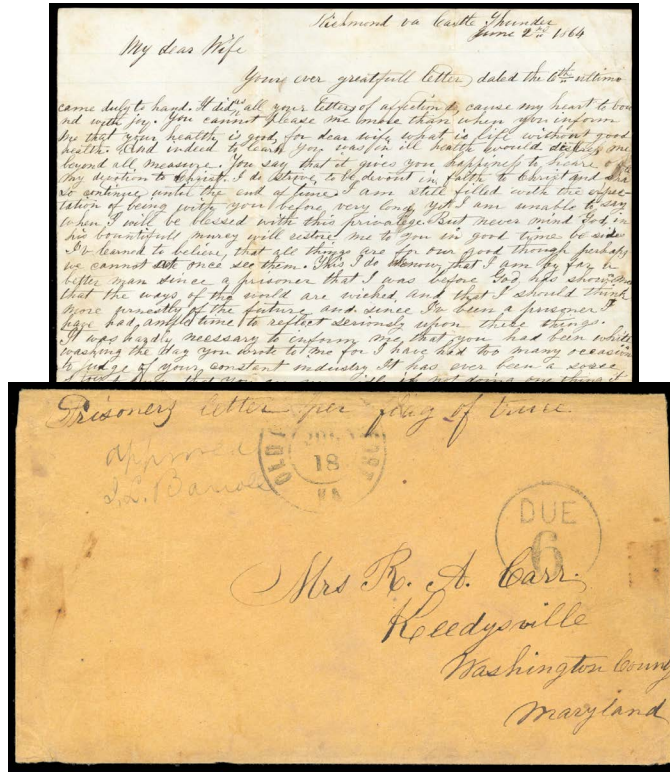 Richmond va Castle Thunder
June 2nd 1864
My dear Wife
Your ever greatfull letter, dated the 6th ultimo
came duly to hand. It did as all your letters of affection do, cause my heart to bou
nd with joy. You cannot please me more than when you inform
me that your health is good, for dear wife what is life without good
health. And indeed to learn you was in ill health would me
beyond all measure. You say that it gives you happiness to heare of
my devotion to Christ. I do strove, to be devout in faith to Christ and
so continue until the end of time. I am still filled with the expec
tation of being with you before very long, yet I am unable to say
when I will be blessed with this privalege. But never mind God in
his bountifull mercy will restore me to you in good tyme be sides
I've learned to believe, that all things are for our good though perhaps
we cannot at once see them. This I do know, that I am by far a
better man since a prisoner that I was before God, has shown me
that the ways of the world are wicked, and that I should think
more ernestly of the future and since I've been a prisoner I
have had ample time to reflect seriously upon these things.
It was hardly necessary to enform me that you had been white
washing the day you wrote to me for I have had too many occasion
to judge of your constant industry It has ever been a
Prisoners letter per flag of truce
approved
OLD
18
VA
DUE
6
Mrs R. A. Carr.
Keedysville
Washington County
Maryland